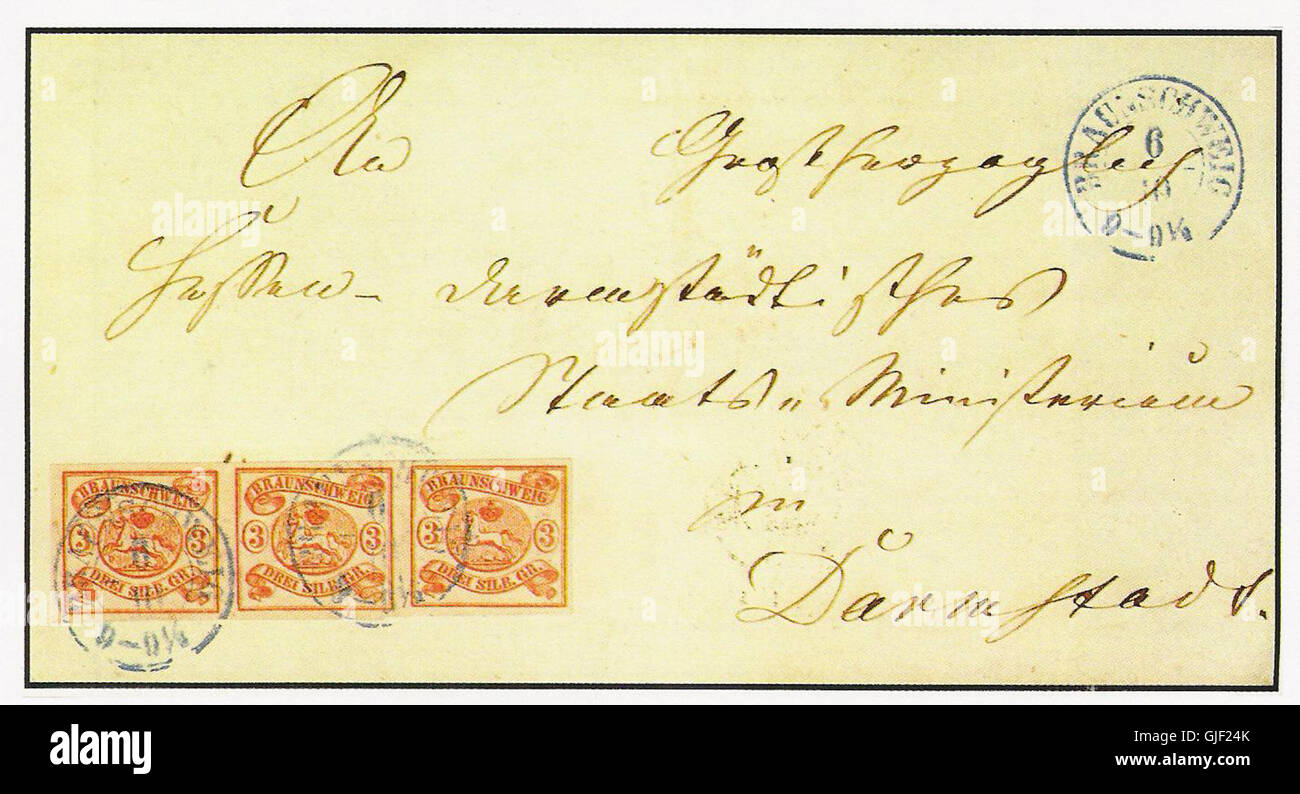 An Großherzoglich
Hessen-darmstädtisches
Staats-Ministerium
in
Darmstadt.
BRAUNSCHWEIG
6
10
9-9¼
BRAUNSCHWEIG
3 3
DREI SILB. GR.
BRAUNSCHWEIG
3 3
DREI SILB. GR.
BRAUNSCHWEIG
3 3
DREI SILB. GR.
9-9¼
a
alamy
a
alamy stock photo
GJF24K
www.alamy.com